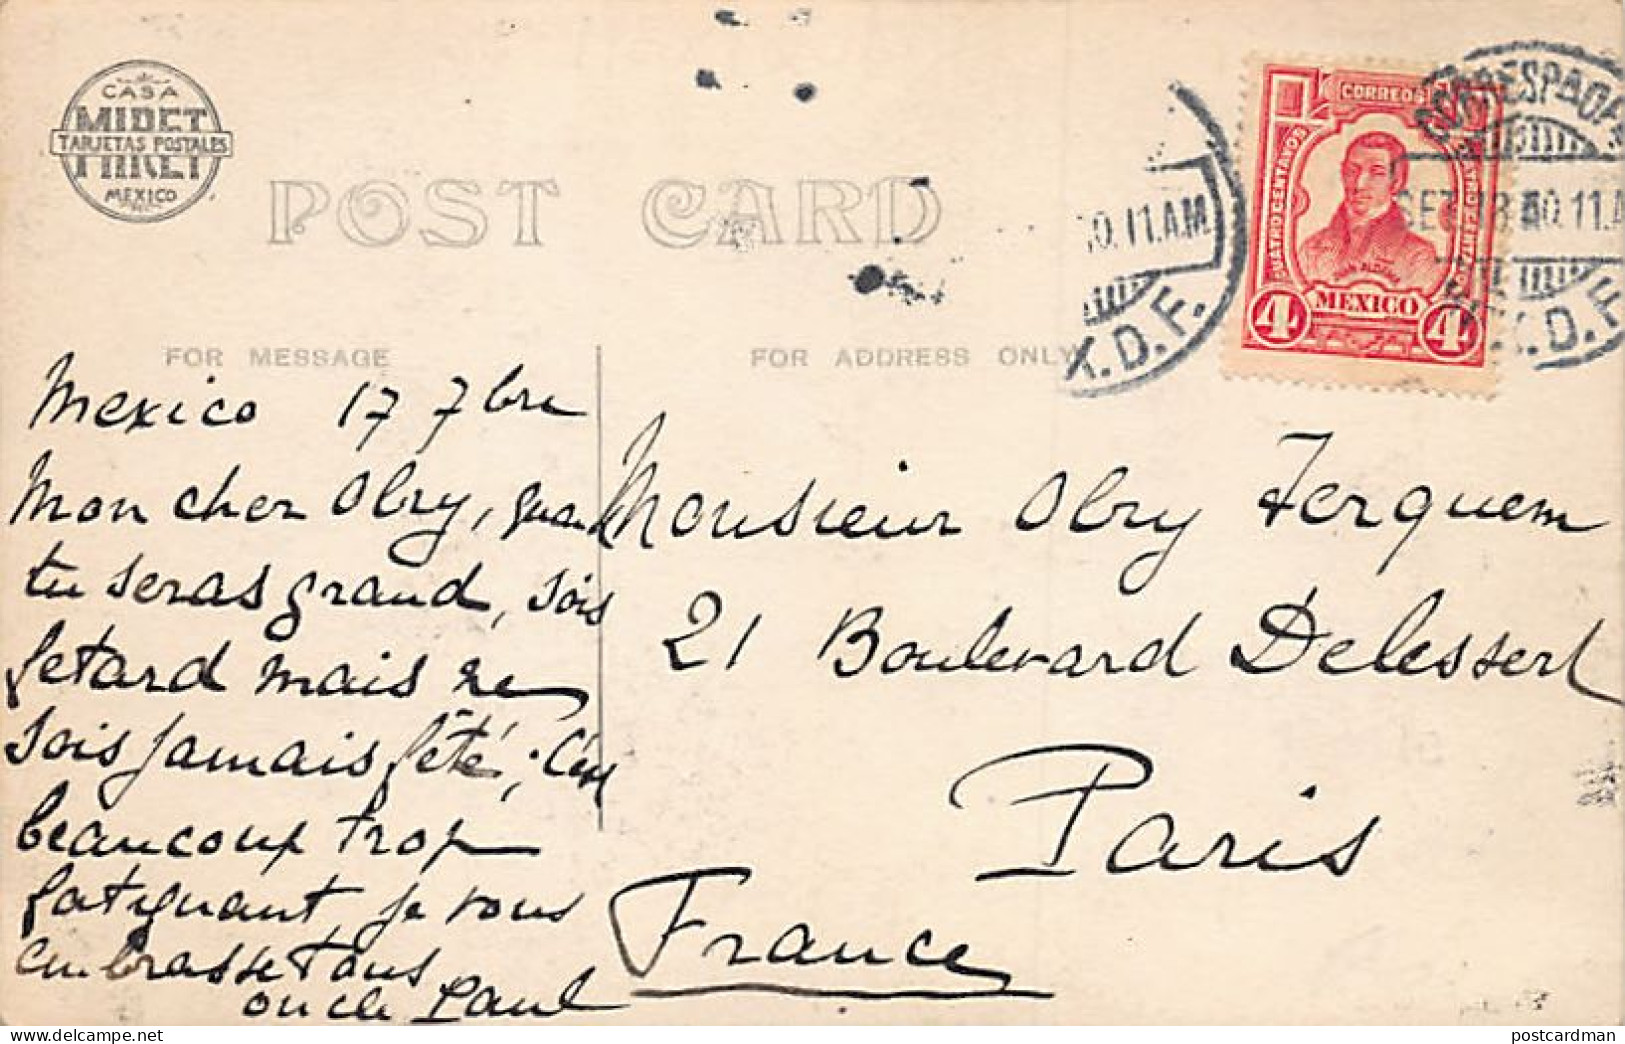 CASA
MIRET
TARJETAS POSTALES
MEXICO
POST CARD
FOR MESSAGE
FOR ADDRESS ONLY
CORREOS
CUATRO CENTAVOS
JUAN ALDAMA
MEXICO
4 4
11.A.M.
X.D.F.
SET 10.11.A
X.D.F.
Mexico 17 7bre
Mon cher Olry, quand
tu seras grand, sois
fetard mais ne
sois jamais fêté, c'est
beaucoup trop
fatiguant je vous
embrasse tous
oncle Paul
Monsieur Olry Terquem
21 Boulevard Delessert
Paris
France
postcardman